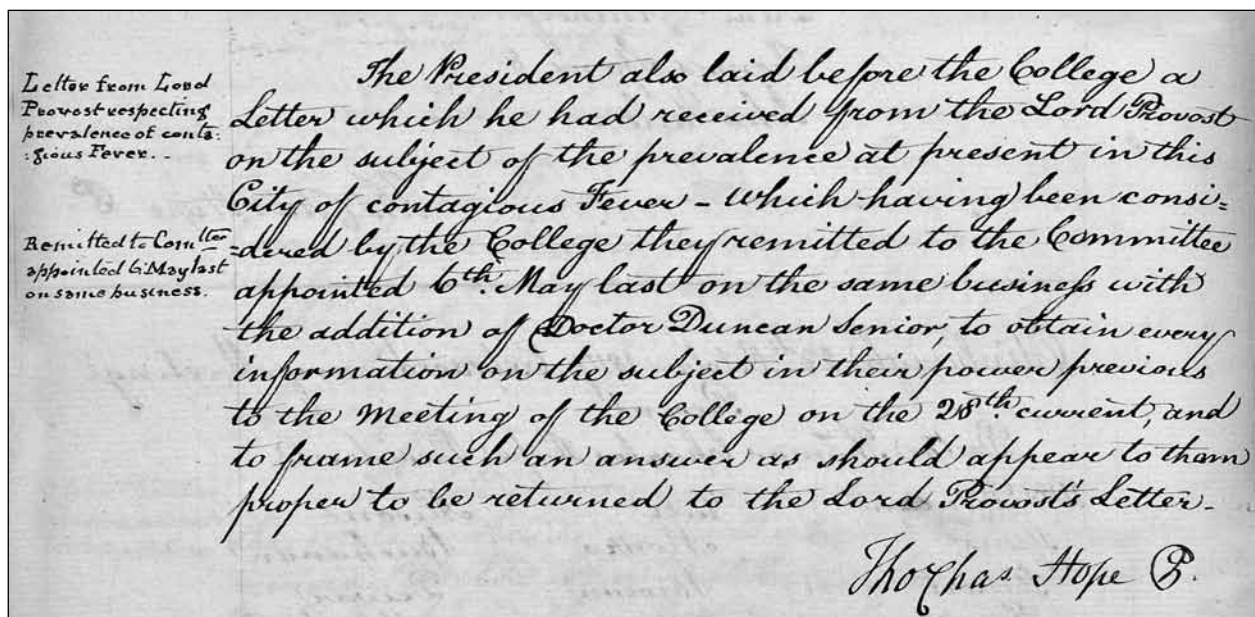 Letter from Lord
Provost respecting
prevalence of conta:
:gious Fever..
Remitted to Com^ttee
appointed 6 May last
on same business.
The President also laid before the College a
Letter which he had received from the Lord Provost
on the subject of the prevalence at present in this
City of contagious Fever – which having been consi=
=dered by the College they remitted to the Committee
appointed 6th. May last on the same business with
the addition of Doctor Duncan Senior, to obtain every
information on the subject in their power previous
to the Meeting of the College on the 28th current, and
to frame such an answer as should appear to them
proper to be returned to the Lord Provost's Letter.
Tho Chas Hope P.